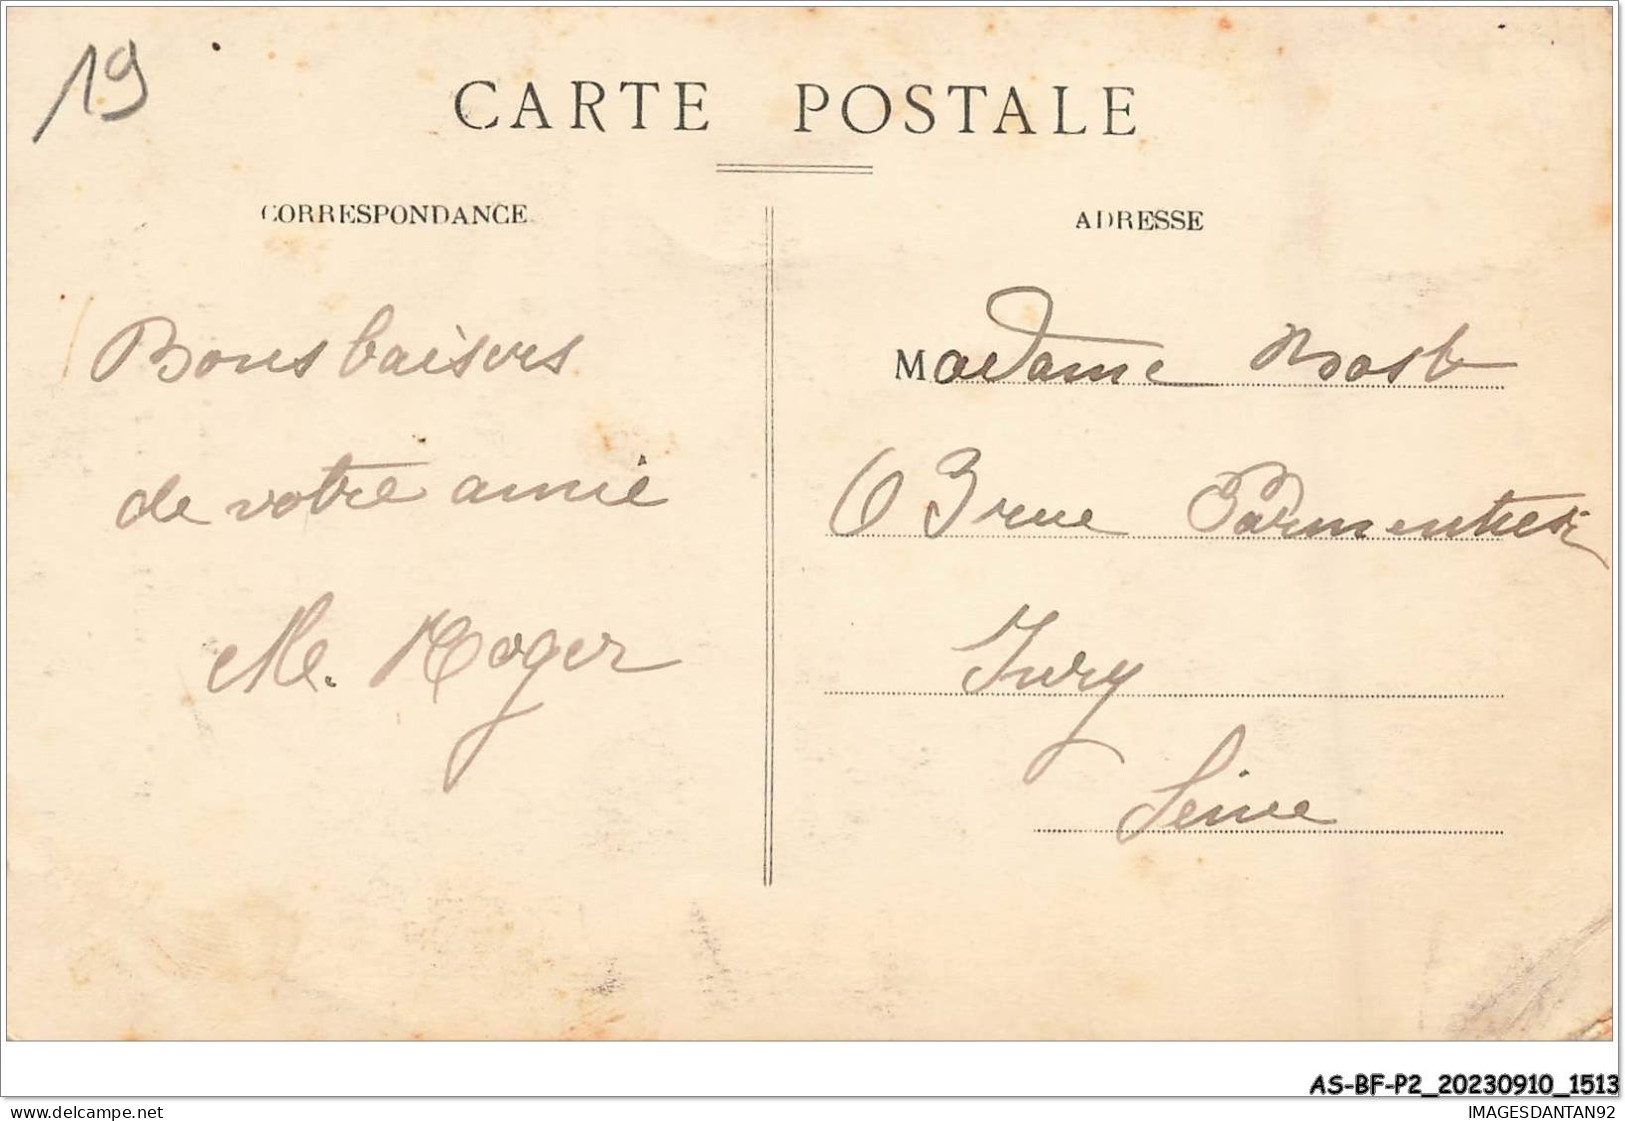 19
CARTE POSTALE
CORRESPONDANCE
Bons baisers
de votre amie
Me. Roger
ADRESSE
Madame
63 rue Parmentier
Ivry
Seine
AS-BF-P2_20230910_1513
www.delcampe.net
IMAGESDANTAN92